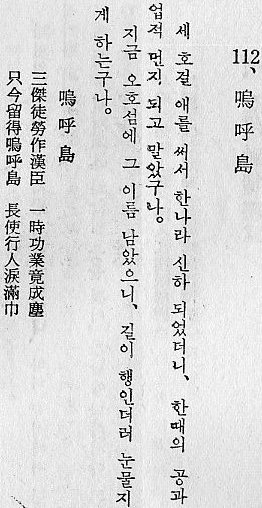 112、嗚呼島
세 호걸 애를 써서 한나라 신하 되었더니、 한때의 공과
업적 먼지 되고 말았구나。
지금 오호섬에 그 이름 남았으니、 길이 행인더러 눈물지
게 하는구나。
嗚呼島
三傑徒勞作漢臣 一時功業竟成塵
只今留得嗚呼島 長使行人淚滿巾